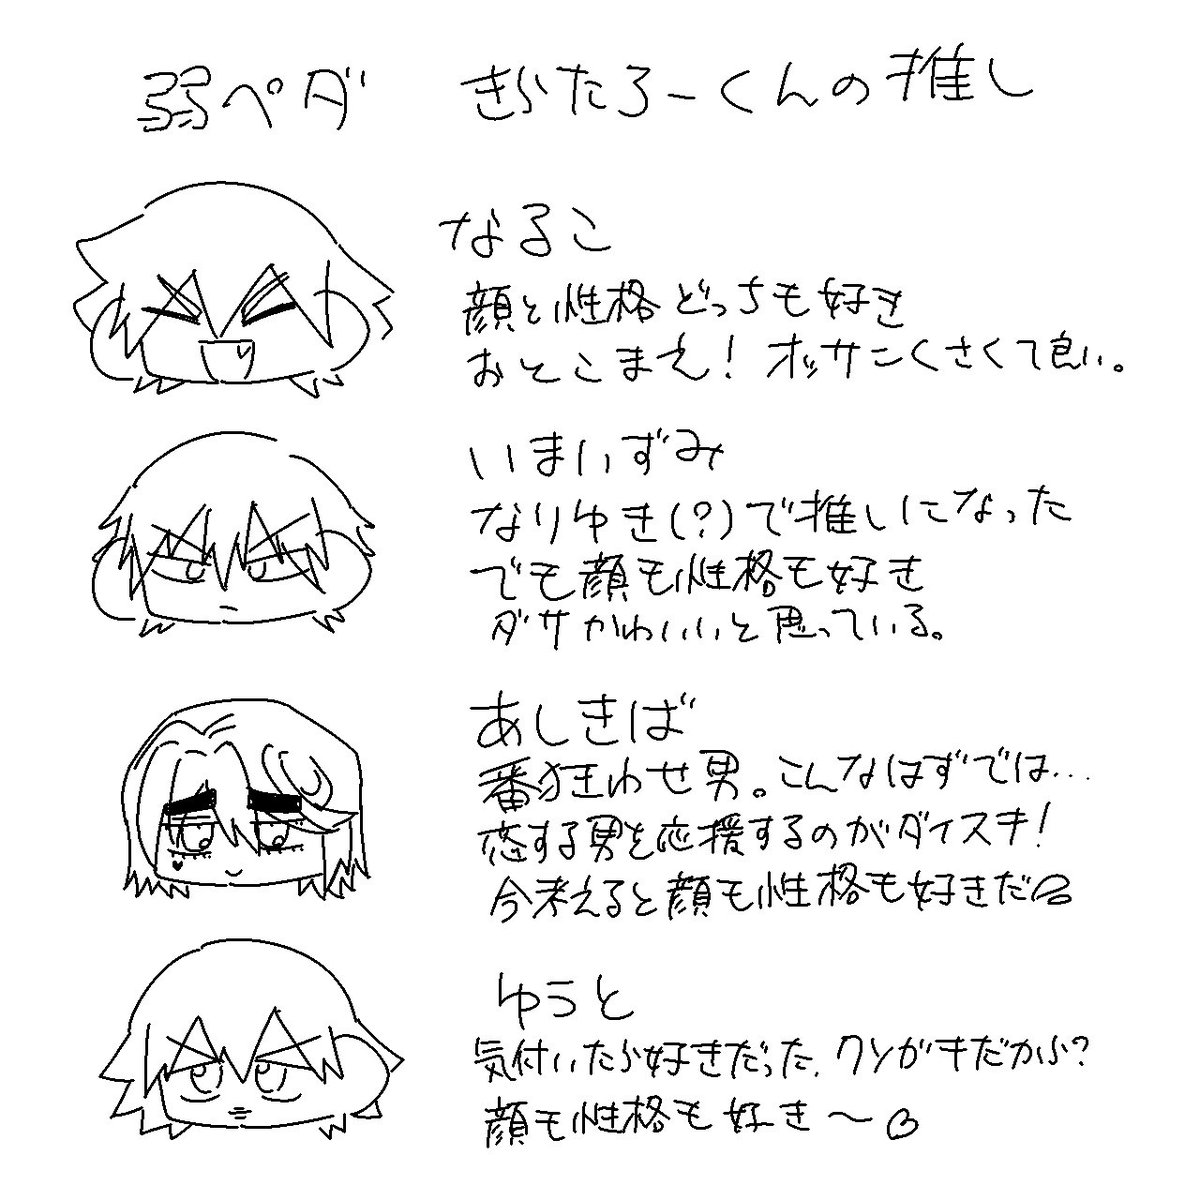 弱ペダ きらたろーくんの推し
なるこ
顔と性格どっちも好き
おとこまえ！オッサンくさくて良い。
いまいずみ
なりゆき(?)で推しになった
でも顔も性格も好き
ダサかわいいと思っている。
あしきば
番狂わせ男。こんなはずでは…
恋する男を応援するのがダイスキ！
今考えると顔も性格も好きだ
ゆうと
気付いたら好きだった、クソガキだから?
顔も性格も好き〜